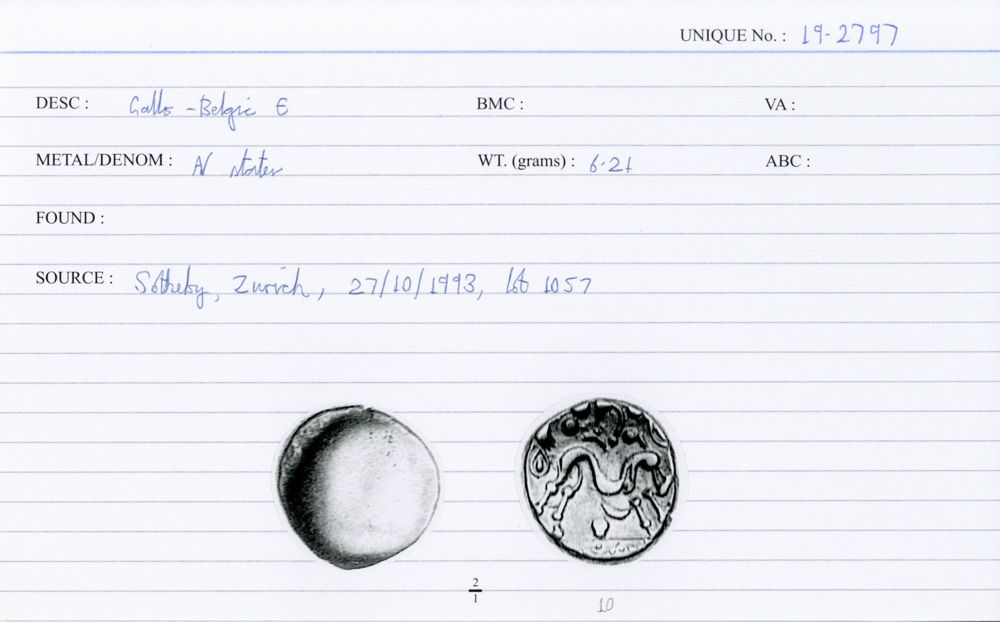 UNIQUE No. : 19-2797
DESC : Gallo-Belgic E BMC : VA :
METAL/DENOM : AV stater WT. (grams) : 6.21 ABC :
FOUND :
SOURCE : Sotheby, Zurich, 27/10/1993, lot 1057
2
1
10